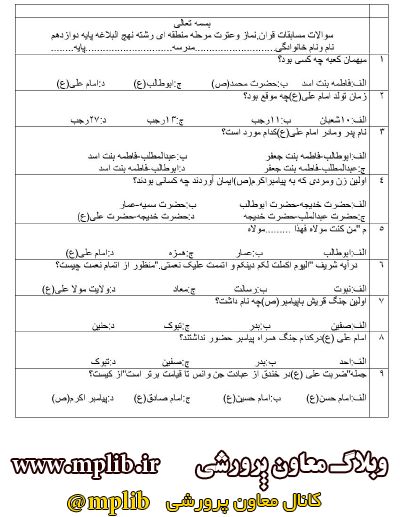 بسمه تعالی
سوالات مسابقات قران,نماز وعترت مرحله منطقه ای رشته نهج البلاغه پایه دوازدهم
نام ونام خانوادگی............................مدرسه..............................پایه........
۱ میهمان کعبه چه کسی بود؟
الف:فاطمه بنت اسد ب:حضرت محمد(ص) ج:ابوطالب(ع) د:امام علی(ع)
۲ زمان تولد امام علی(ع)چه موقع بود؟
الف:۱۰شعبان ب:۱۱رجب ج:۱۳رجب د:۲۷رجب
۳ نام پدر ومادر امام علی(ع)کدام مورد است؟
الف:ابوطالب-فاطمه بنت جعفر ب:عبدالمطلب-فاطمه بنت اسد
ج:عبدالمطلب-فاطمه بنت جعفر د:ابوطالب-فاطمه بنت اسد
۴ اولین زن ومردی که به پیامبراکرم(ص)ایمان آوردند چه کسانی بودند؟
الف:حضرت خدیجه-حضرت ابوطالب ب:حضرت سمیه-عمار
ج:حضرت عبدالملب-حضرت خدیجه د:حضرت خدیجه-حضرت علی(ع)
۵ م "من کنت مولاه فهذا .........مولاه
الف:ابوطالب ب:عمار ج:حمزه د:امام علی(ع)
۶ درآیه شریف "الیوم اکملت لکم دینکم و اتممت علیک نعمتی."منظور از اتمام نعمت چیست؟
الف:نبوت ب:رسالت ج:معاد د:ولایت مولا علی(ع)
۷ اولین جنگ قریش باپیامبر(ص)چه نام داشت؟
الف:صفین ب:بدر ج:تبوک د:حنین
۸ امام علی (ع)درکدام جنگ همراه پیامبر حضور نداشتند؟
الف:احد ب:بدر ج:صفین د:تبوک
۹ جمله"ضربت علی (ع)در خندق از عبادت جن وانس تا قیامت برتر است"از کیست؟
الف:امام حسن(ع) ب:امام حسین(ع) ج:امام صادق(ع) د:پیامبر اکرم(ص)
وبلاگ معاون پرورشی www.mplib.ir
کانال معاون پرورشی @mplib